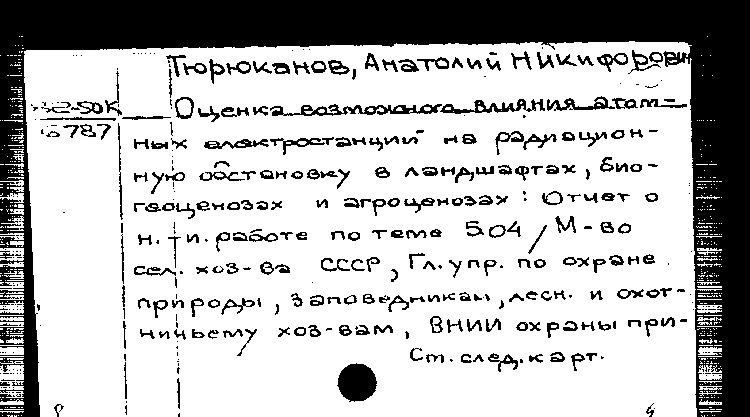 Тюрюканов, Анатолий Никифорович
Оценка возможного влияния атом-
787
ных электростанций на радиацион-
ную обстановку в ландшафтах, био-
геоценозах и агроценозах: Отчет о
н.-и. работе по теме 5.04 / М-во
сел. хоз-ва СССР, Гл. упр. по охране
природы, заповедникам, лесн. и охот-
ничьему хоз-вам, ВНИИ охраны при-
Ст. след. карт.